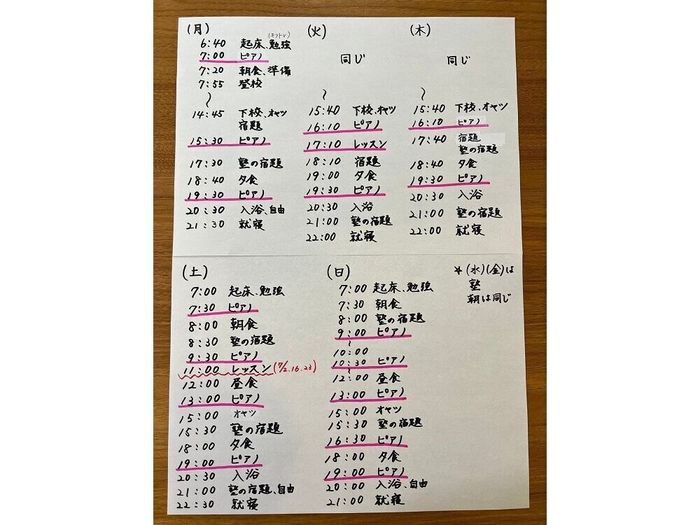 (月)
6:40 起床、勉強
7:00 ピアノ
7:20 朝食、準備
7:55 登校
〜
14:45 下校、オヤツ
宿題
15:30 ピアノ
17:30 塾の宿題
18:40 夕食
19:30 ピアノ
20:30 入浴、自由
21:30 就寝
(火)
同じ
〜
15:40 下校、オヤツ
16:10 ピアノ
17:10 レッスン
18:10 宿題
19:00 夕食
19:30 ピアノ
20:30 入浴
21:00 塾の宿題
22:00 就寝
(木)
同じ
〜
15:40 下校、オヤツ
16:10 ピアノ
17:40 宿題
塾の宿題
18:40 夕食
19:30 ピアノ
20:30 入浴
21:00 塾の宿題
22:00 就寝
(土)
7:00 起床、勉強
7:30 ピアノ
8:00 朝食
8:30 塾の宿題
9:30 ピアノ
11:00 レッスン(7/2.16.23)
12:00 昼食
13:00 ピアノ
15:00 オヤツ
15:30 塾の宿題
18:00 夕食
19:00 ピアノ
20:30 入浴
21:00 塾の宿題、自由
22:30 就寝
(日)
7:00 起床、勉強
7:30 朝食
8:00 塾の宿題
9:00 ピアノ
〜
10:00
10:30 ピアノ
〜
12:00 昼食
13:00 ピアノ
15:00 オヤツ
15:30 塾の宿題
16:30 ピアノ
18:00 夕食
19:00 ピアノ
20:00 入浴、自由
21:00 就寝
*(水)(金)は
塾
朝は同じ